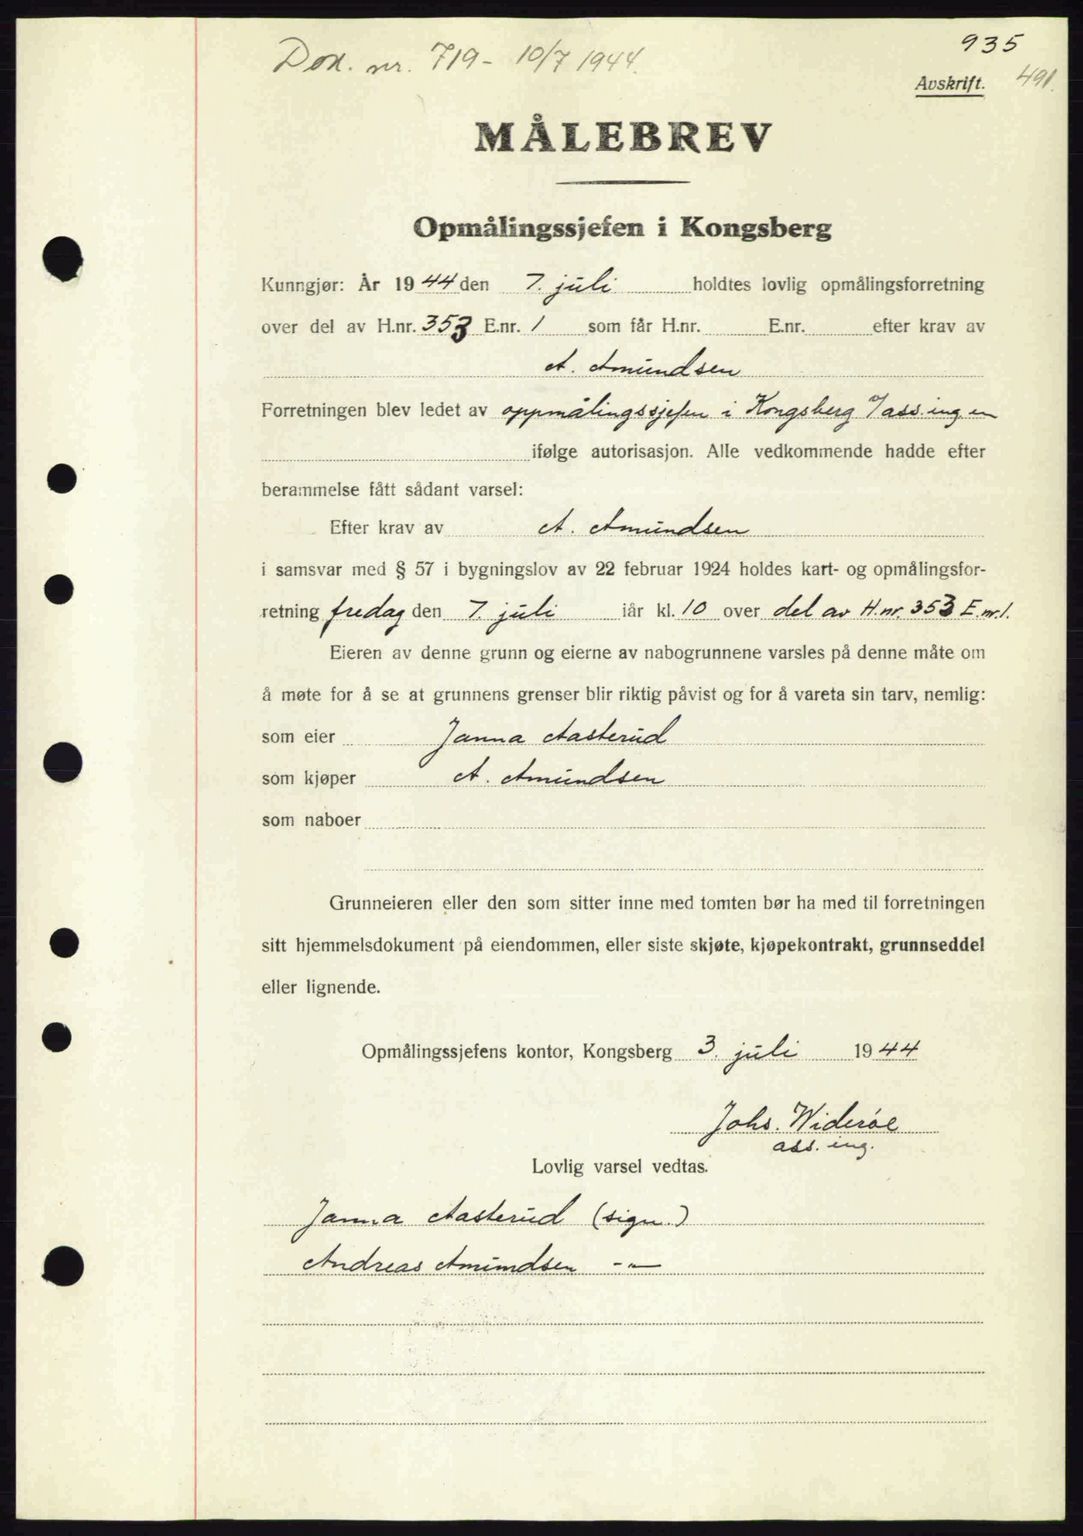 935
Dok. nr. 719 - 10/7 1944.
Avskrift.
491.
MÅLEBREV
Opmålingssjefen i Kongsberg
Kunngjør: År 1944 den 7. juli holdtes lovlig opmålingsforretning
over del av H.nr. 353 E.nr. 1 som får H.nr. E.nr. efter krav av
A. Amundsen
Forretningen blev ledet av oppmålingssjefen i Kongsberg v/ass. ing en
ifølge autorisasjon. Alle vedkommende hadde efter
berammelse fått sådant varsel:
Efter krav av A. Amundsen
i samsvar med § 57 i bygningslov av 22 februar 1924 holdes kart- og opmålingsfor-
retning fredag den 7. juli iår kl. 10 over del av H.nr. 353 E.nr.1.
Eieren av denne grunn og eierne av nabogrunnene varsles på denne måte om
å møte for å se at grunnens grenser blir riktig påvist og for å vareta sin tarv, nemlig:
som eier Janna Aasterud
som kjøper A. Amundsen
som naboer
Grunneieren eller den som sitter inne med tomten bør ha med til forretningen
sitt hjemmelsdokument på eiendommen, eller siste skjøte, kjøpekontrakt, grunnseddel
eller lignende.
Opmålingssjefens kontor, Kongsberg 3. juli 1944
Johs. Widerøe
ass. ing.
Lovlig varsel vedtas.
Janna Aasterud (sign.)
Andreas Amundsen -"-